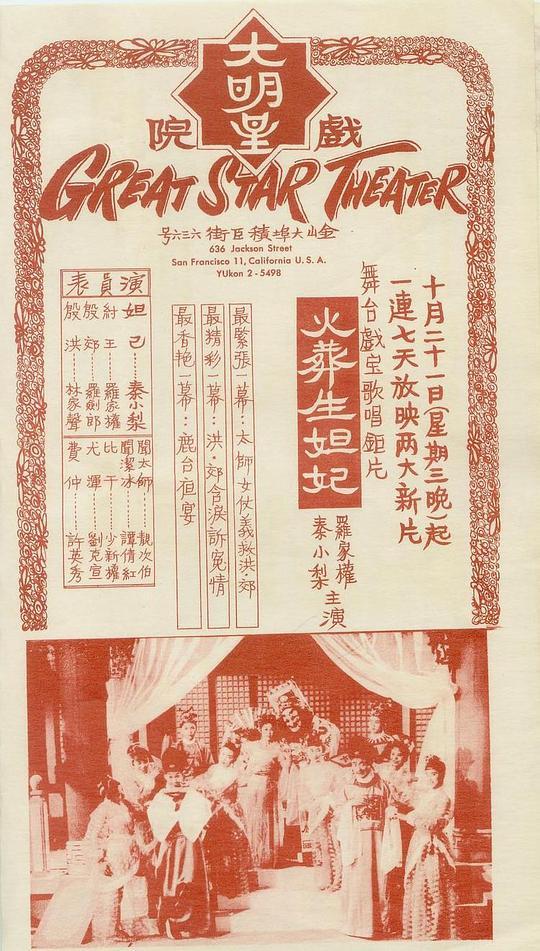 大明星
戲院
GREAT STAR THEATER
金山大埠積臣街六三六号
636 Jackson Street
San Francisco 11, California U. S. A.
YUkon 2 - 5498
十月二十一日(星期三晚)起
一連七天放映两大新片
舞台戲宝歌唱鉅片
火葬生妲妃
羅家權
秦小梨
主演
最緊張一幕：太師女仗義救洪·郊
最精彩一幕：洪·郊含淚訴寃情
最香艳一幕：鹿台夜宴
演員表
妲己……秦小梨
紂王……羅家權
殷郊……羅劍郎
殷洪……林家聲
聞太師……靚次伯
聞潔冰……譚倩紅
比干……少新權
尤渾……劉克宣
費仲……許英秀